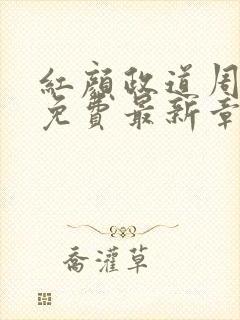 紅顏政道周
免費最新章
喬灌草